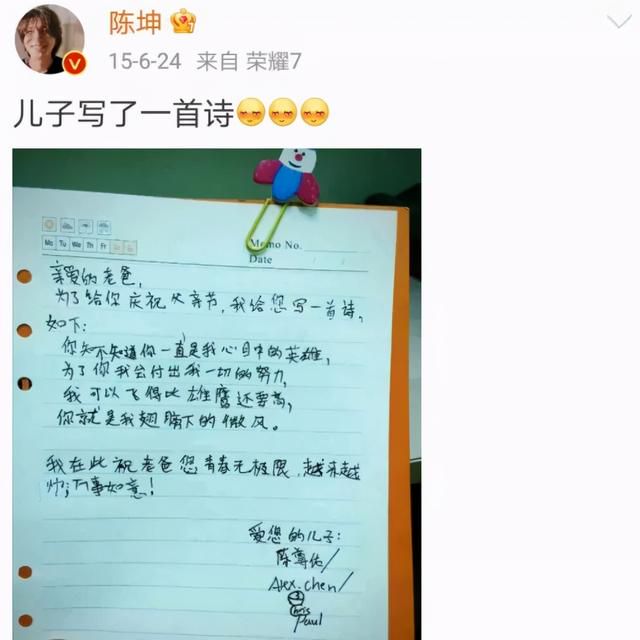 陈坤
15-6-24 来自 荣耀7
儿子写了一首诗
Mo Tu We Th Fr
Memo No.
Date
亲爱的老爸,
为了给你庆祝父亲节,我给您写一首诗,
如下:
你知不知道你一直是我心目中的英雄,
为了你我会付出我一切的努力,
我可以飞得比雄鹰还要高,
你就是我翅膀下的微风。
我在此祝老爸您青春无极限,越来越
帅,万事如意!
爱您的儿子:
陈尊佑/
Alex.chen/
Chris
Paul